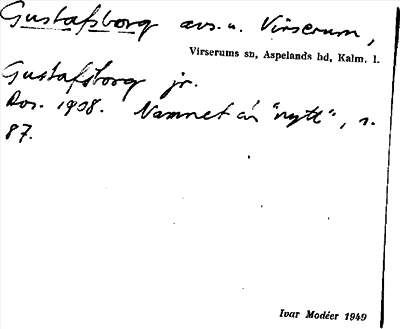 Gustafsborg avs. u. Virserum,
Virserums sn, Aspelands hd, Kalm. l.
Gustafsborg jr.
Ros. 1908. Namnet är "nytt", s.
87.
Ivar Modéer 1949